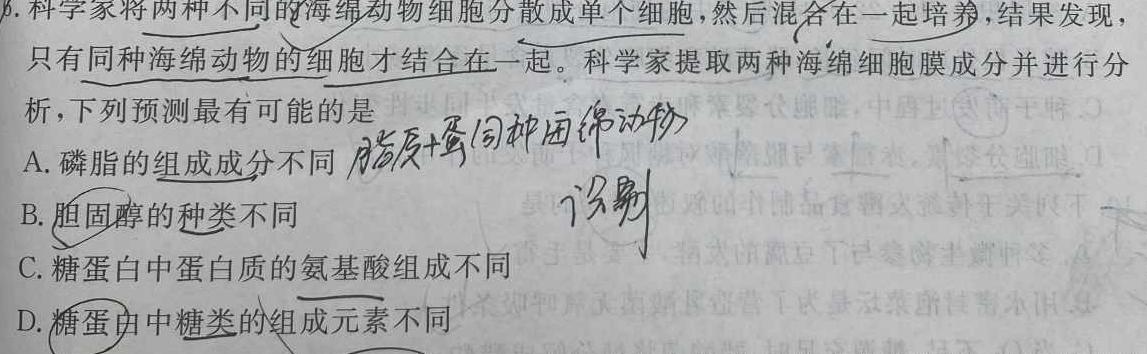 6.科学家将两种不同的海绵动物细胞分散成单个细胞,然后混合在一起培养,结果发现,
只有同种海绵动物的细胞才结合在一起。科学家提取两种海绵细胞膜成分并进行分
析,下列预测最有可能的是
A.磷脂的组成成分不同
脂质+蛋 同种海绵动物
识别
B.胆固醇的种类不同
C.糖蛋白中蛋白质的氨基酸组成不同
D.糖蛋白中糖类的组成元素不同